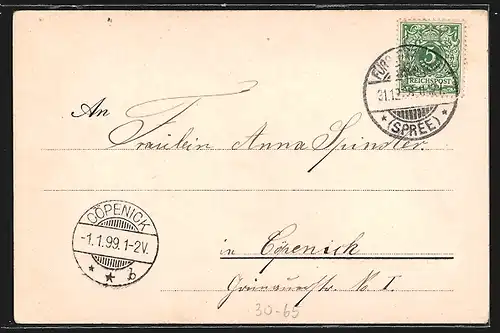 5
REICHSPOST
(SPREE)
An
Fräulein Anna Spindler.
CÖPENICK
-1.1.99.1-2V.
* * b
in Cöpenick
No. I.
30-65